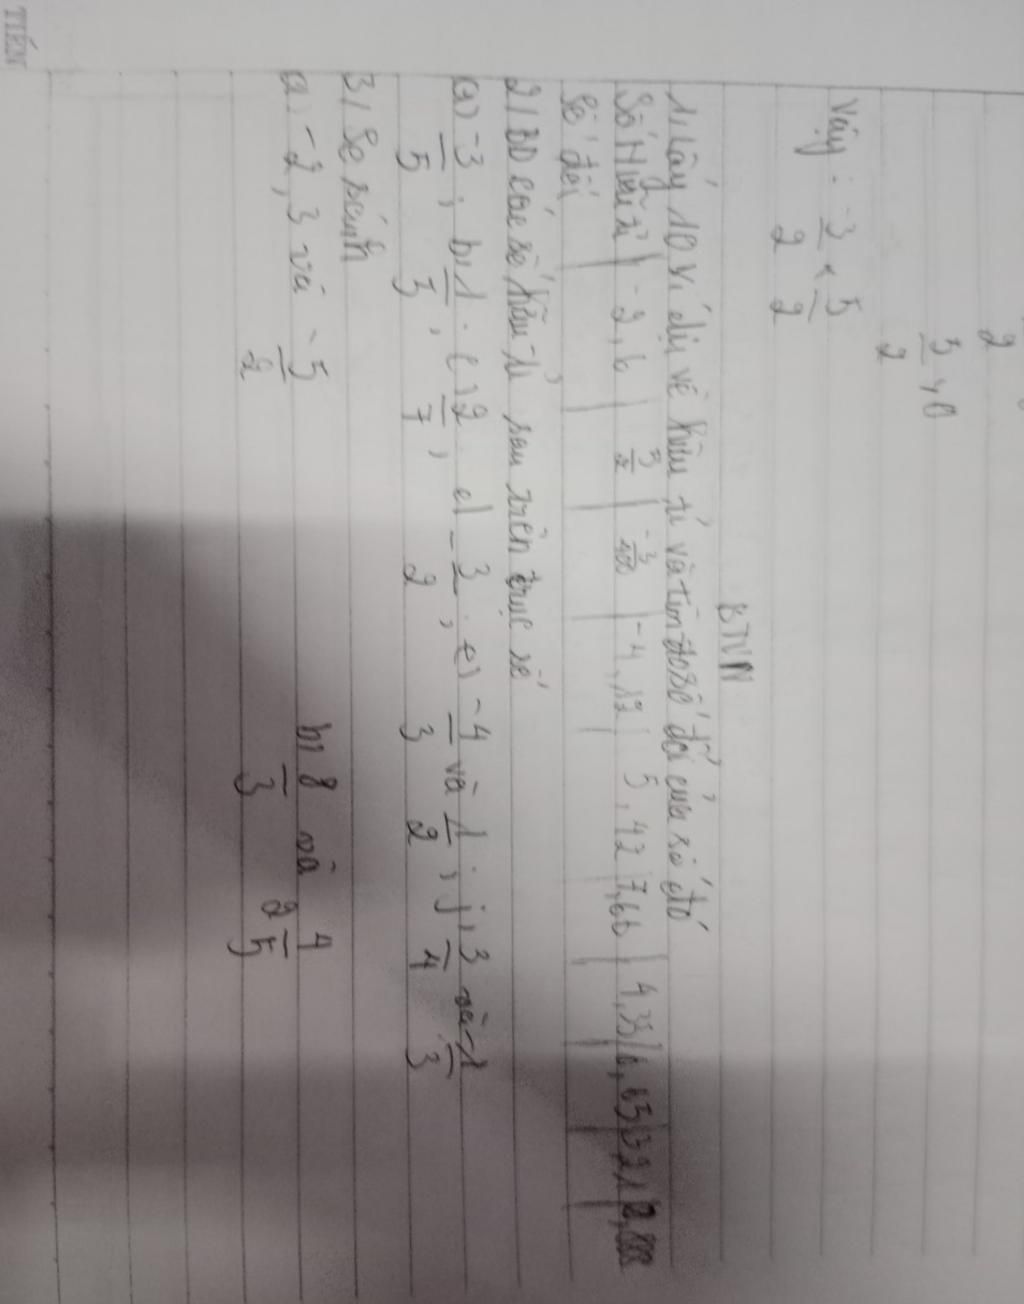 2
5/2 > 0
Vậy: -3/2 < 5/2
BTVN
1/ Lấy 10 ví dụ về hữu tỉ và tìm số đối của số đó
Số Hữu tỉ | -2,6 | | | -4,12 | 5,42 | 7,66 | 4,35 |
Số đối
2/ BD các số hữu tỉ sau trên trục số
a) -3/5 ; b) 1/3 ; c) 2/7 ; d) -3/2 ; e) -4/3 và 1/2 ; j) 3/4 và -1/3
3/ So sánh
a) -2,3 và -5/2 b) 8/3 và 2 4/5
TIẾN